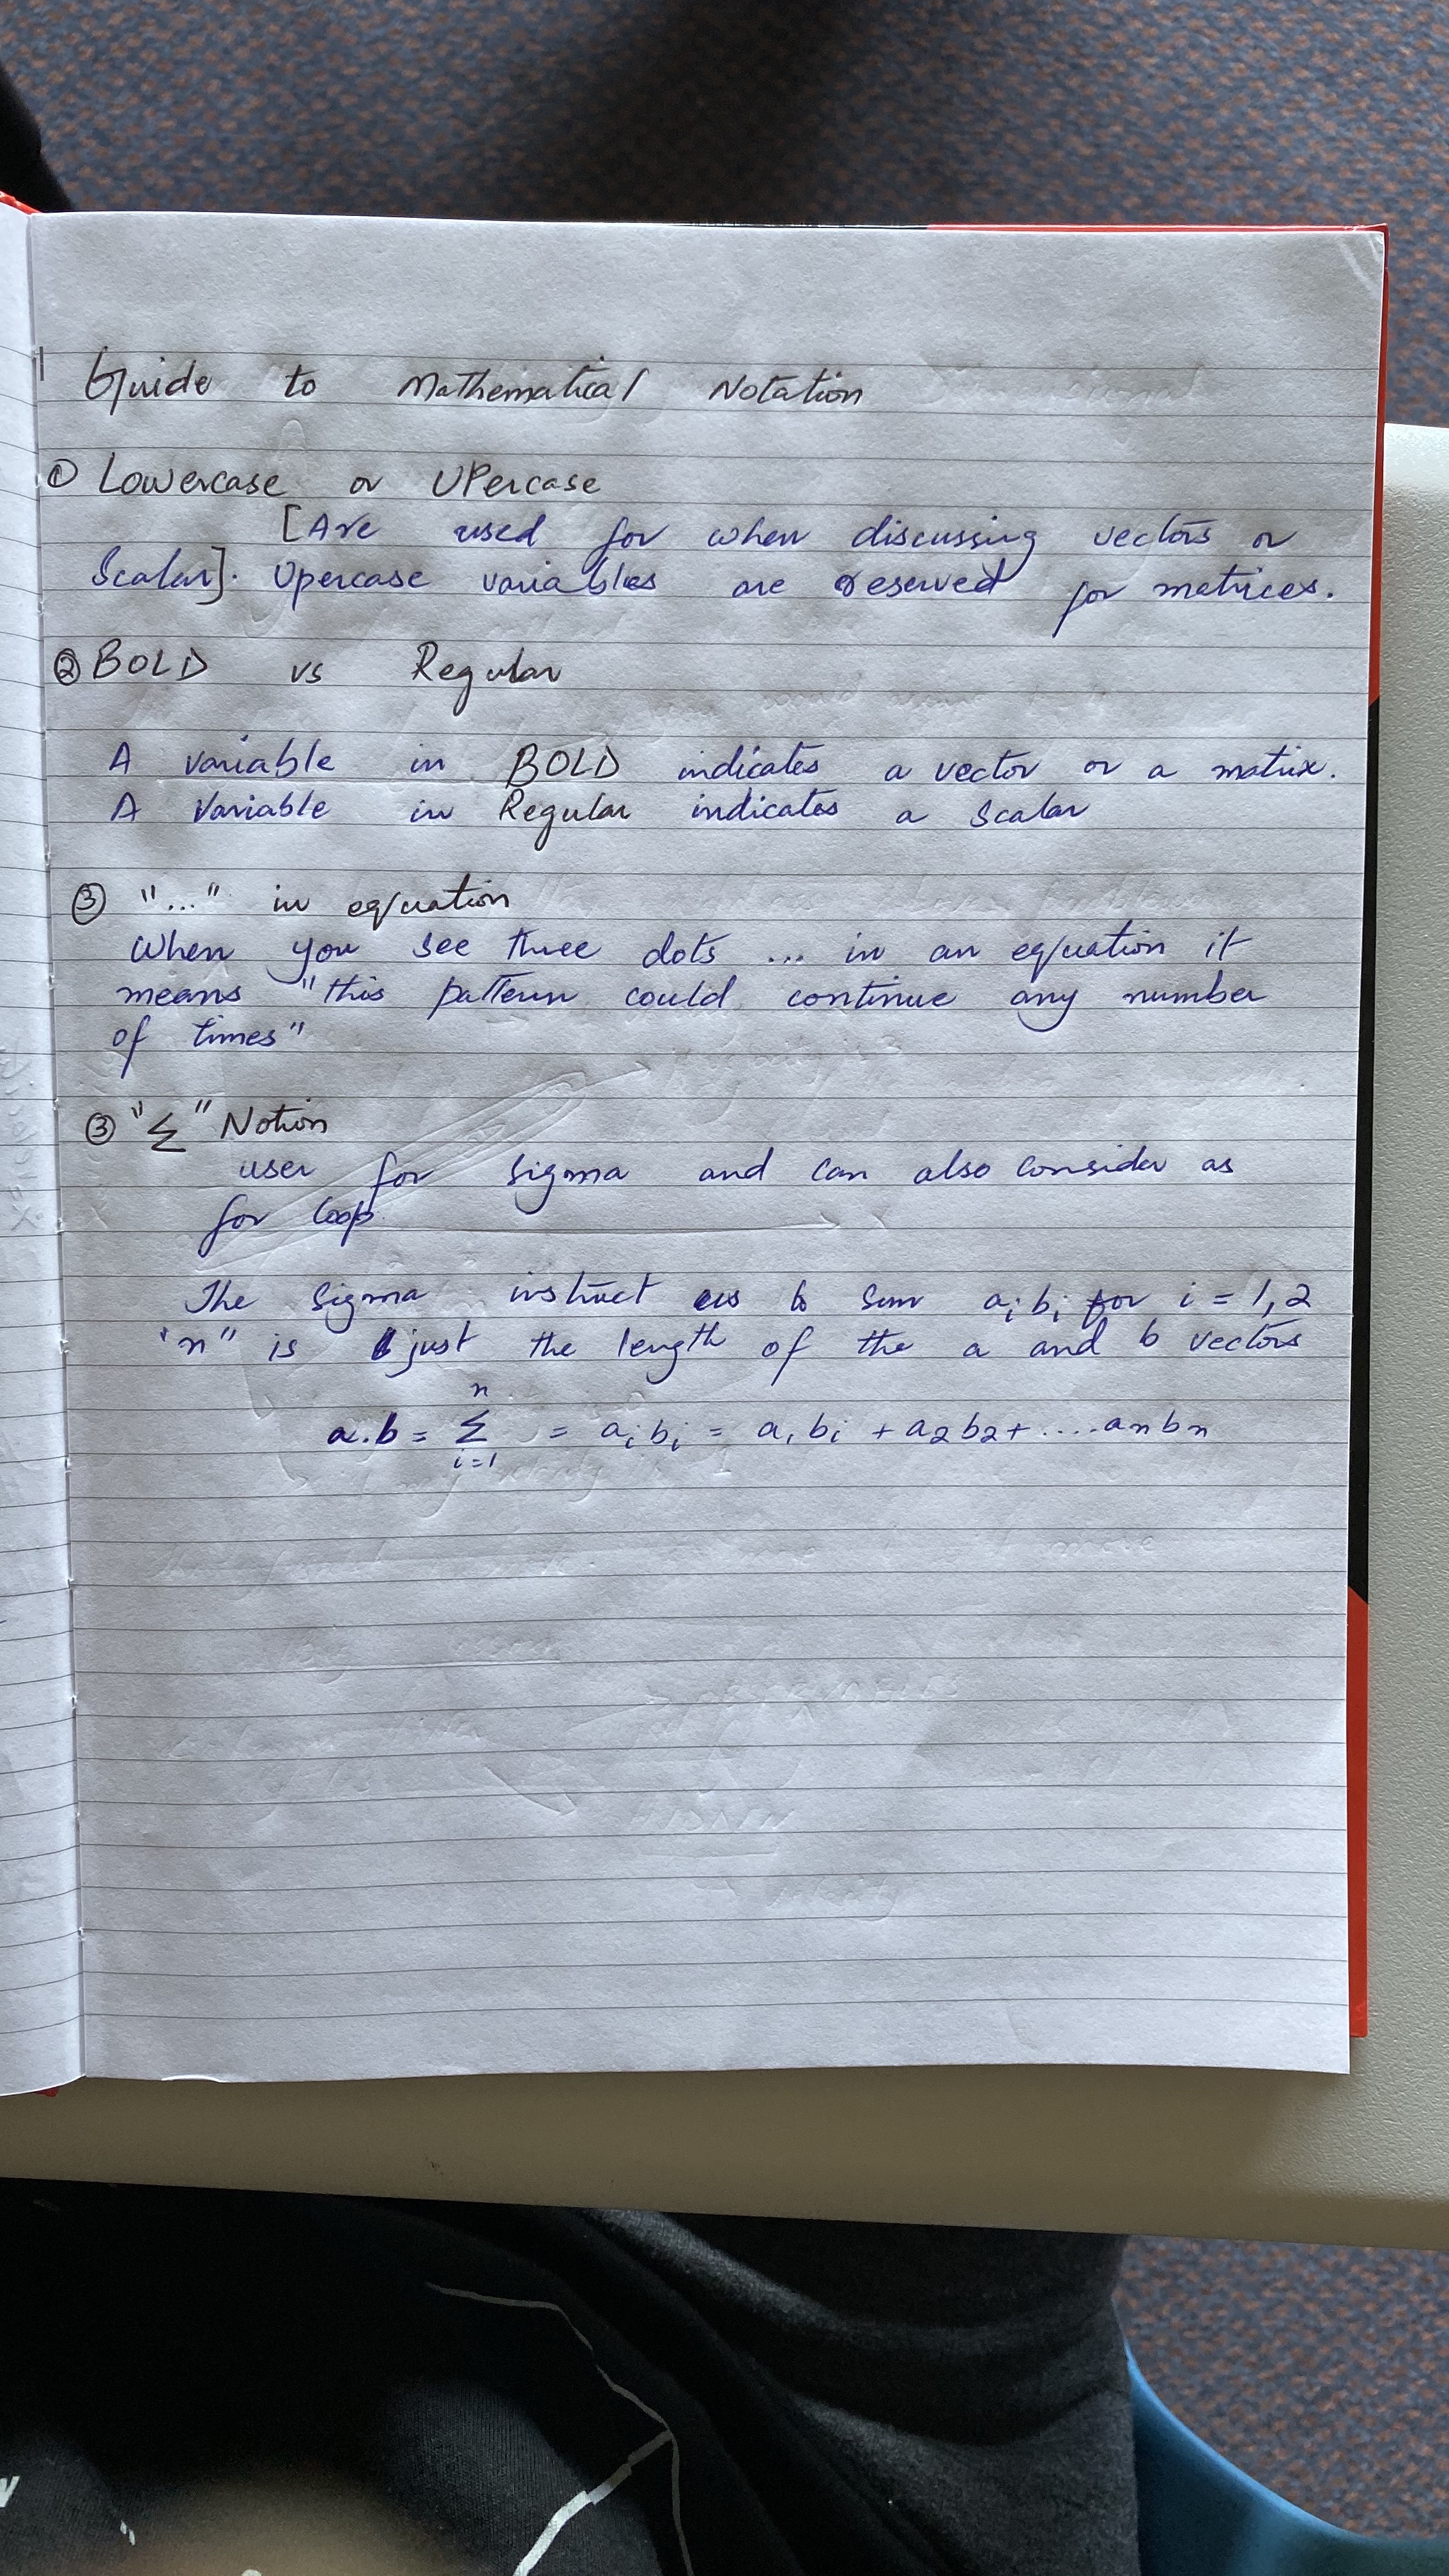 Guide to Mathematical Notation
① Lowercase or UPercase
[Are used for when discussing vectors or
Scalar]. Upercase variables are reserved for matrices.
② BOLD vs Regular
A variable in BOLD indicates a vector or a matrix.
A Variable in Regular indicates a Scalar
③ "..." in equation
When you see three dots ... in an equation it
means "this pattern could continue any number
of times"
③ "Σ" Notion
user for sigma and can also consider as
for loop
The Sigma instruct us to sum aᵢbᵢ for i = 1,2
"n" is just the length of the a and b vectors
a.b = Σⁿᵢ₌₁ = aᵢbᵢ = a₁bᵢ + a₂b₂+ ....anbn